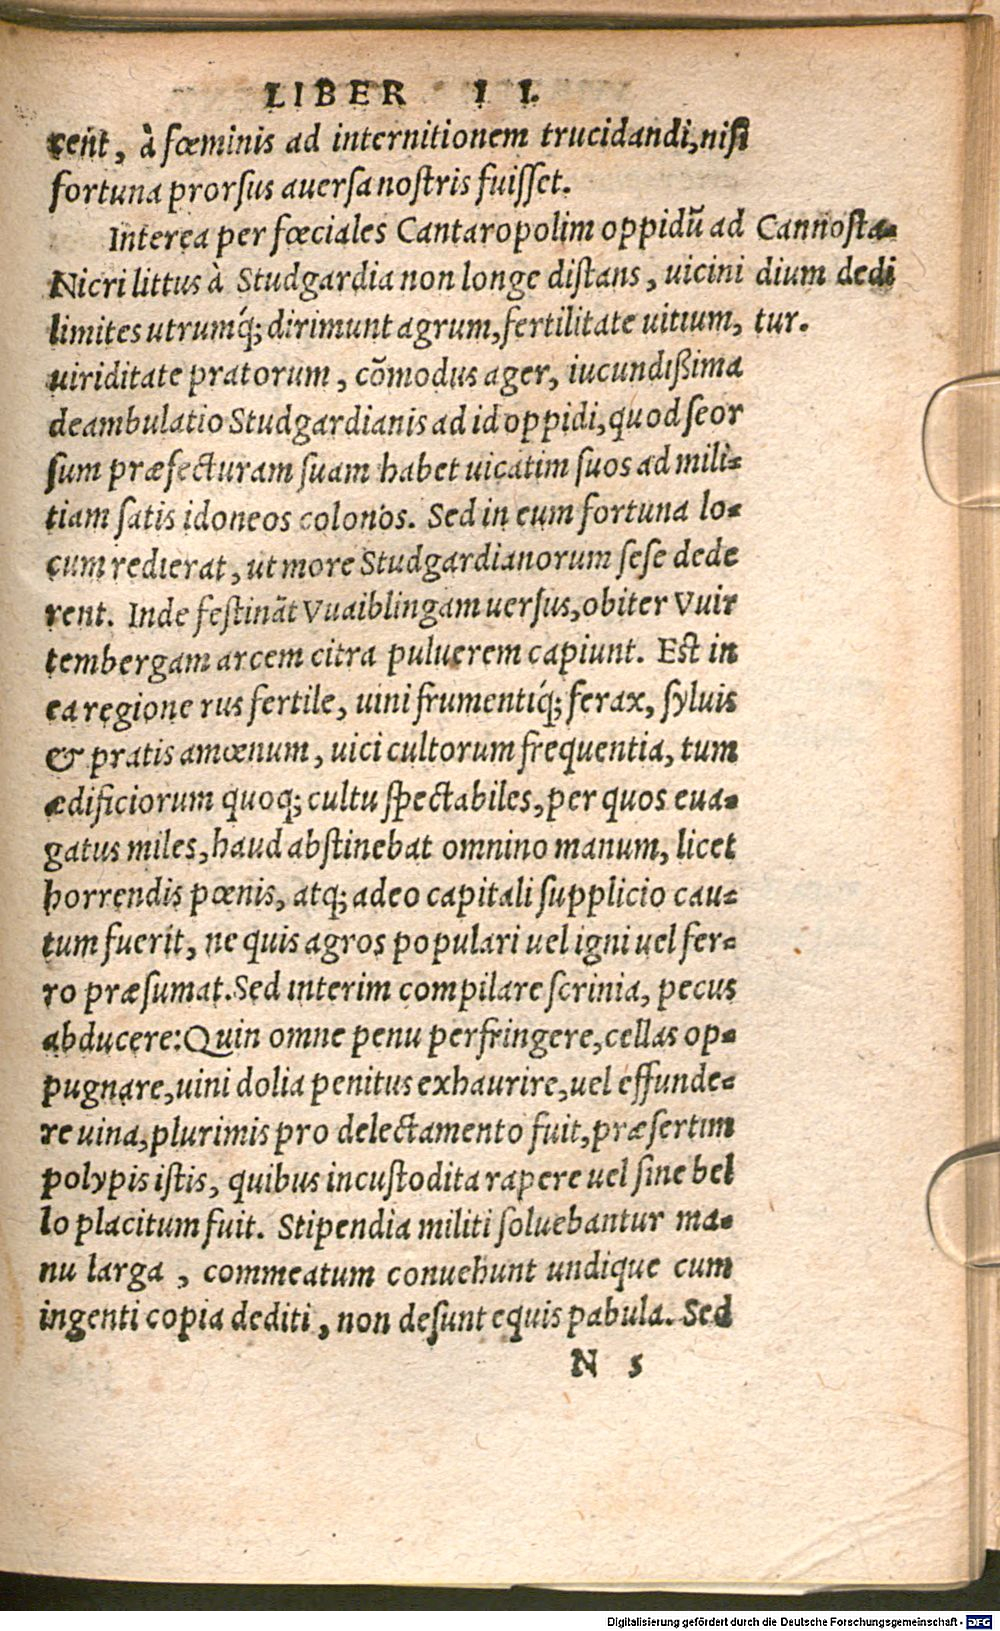 LIBER II.
rent, à fœminis ad internitionem trucidandi, nisi
fortuna prorsus auersa nostris fuisset.
Interea per fœciales Cantaropolim oppidū ad
Nicri littus à Studgardia non longe distans, uicini
limites utrumq́; dirimunt agrum, fertilitate uitium,
uiriditate pratorum, cōmodus ager, iucundißima
deambulatio Studgardianis ad id oppidi, quod seor
sum præfecturam suam habet uicatim suos ad mili-
tiam satis idoneos colonos. Sed in eum fortuna lo-
cum redierat, ut more Studgardianorum sese dede
rent. Inde festināt Vuaiblingam uersus, obiter Vuir
tembergam arcem citra puluerem capiunt. Est in
ea regione rus fertile, uini frumentiq́; ferax, syluis
& pratis amœnum, uici cultorum frequentia, tum
ædificiorum quoq; cultu spectabiles, per quos eua-
gatus miles, haud abstinebat omnino manum, licet
horrendis pœnis, atq; adeo capitali supplicio cau-
tum fuerit, ne quis agros populari uel igni uel fer-
ro præsumat. Sed interim compilare scrinia, pecus
abducere: Quin omne penu perfringere, cellas op-
pugnare, uini dolia penitus exhaurire, uel effunde-
re uina, plurimis pro delectamento fuit, præsertim
polypis istis, quibus incustodita rapere uel sine bel
lo placitum fuit. Stipendia militi soluebantur ma-
nu larga, commeatum conuehunt undique cum
ingenti copia dediti, non desunt equis pabula. Sed
N 5
Cannosta-
dium dedi
tur.
Digitalisierung gefördert durch die Deutsche Forschungsgemeinschaft - DFG